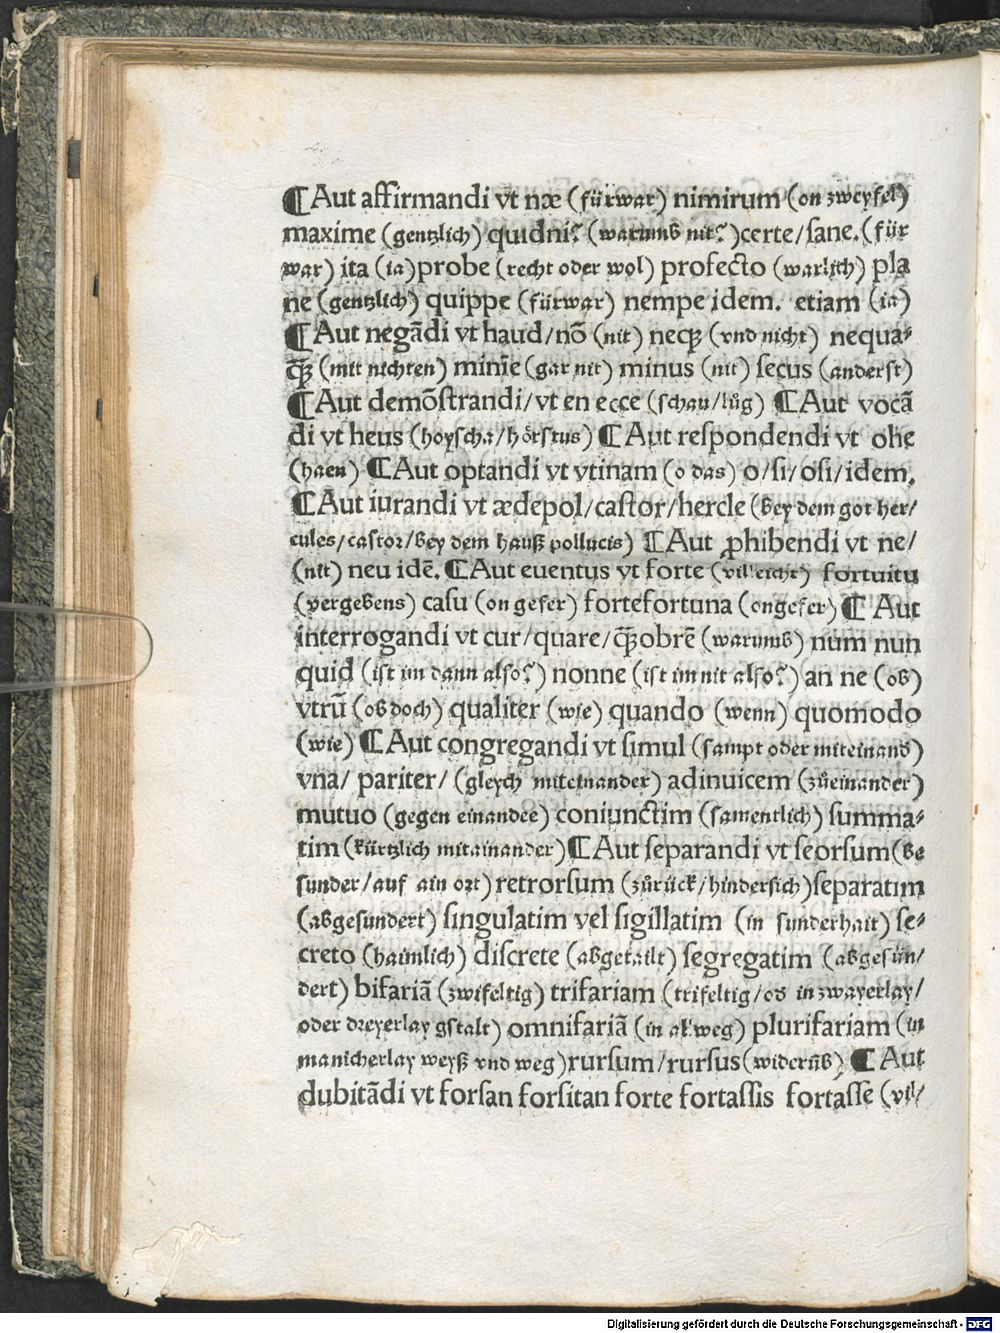 ¶Aut affirmandi vt næ (fürwar) nimirum (on zweyfel)
maxime (gentzlich) quidni? (warumb nit?)certe/sane.(für
war) ita (ia)probe (recht oder wol) profecto (warlich) pla
ne (gentzlich) quippe (fürwar) nempe idem. etiam (ia)
¶Aut negādi vt haud/nō (nit) neqȝ (vnd nicht) nequa⸗
q̄ȝ (mit nichten) minīe (gar nit) minus (nit) secus (anderst)
¶Aut demōstrandi/vt en ecce (schau/lůg) ¶Aut vocā
di vt heus (hoyscha/hörstus) ¶Aut respondendi vt ohe
(haen) ¶Aut optandi vt vtinam (o das) o/si/osi/idem.
¶Aut iurandi vt ædepol/castor/hercle (bey dem got her/
cules/castor/bey dem hauß pollucis) ¶Aut ꝓhibendi vt ne/
(nit) neu idē. ¶Aut euentus vt forte (villeicht) fortuitu
(vergebens) casu (on gefer) fortefortuna (ongefer) ¶ Aut
interrogandi vt cur/quare/q̄ȝobrē (warumb) num nun
quid (ist im dann also?) nonne (ist im nit also?) an ne (ob)
vtrū (ob doch) qualiter (wie) quando (wenn) quomodo
(wie) ¶Aut congregandi vt simul (sampt oder miteinand)
vna/ pariter/ (gleych miteinander) adinuicem (zůeinander)
mutuo (gegen einandee) coniunctim (samentlich) summa⸗
tim (kürtzlich mitainander)¶Aut separandi vt seorsum(be
sunder/auf ain ort)retrorsum (zůrück/hindersich)separatim
(abgesundert) singulatim vel sigillatim (in sunderhait) se⸗
creto (haimlich) discrete (abgetailt) segregatim (abgesün/
dert) bifariā (zwifeltig) trifariam (trifeltig/od in zwayerlay/
oder dreyerlay gstalt) omnifariā (in al weg) plurifariam (in
manicherlay weyß vnd weg)rursum/rursus(widerūb) ¶ Aut
dubitādi vt forsan forsitan forte fortassis fortasse (vil/
Digitalisierung gefördert durch die Deutsche Forschungsgemeinschaft - DFG